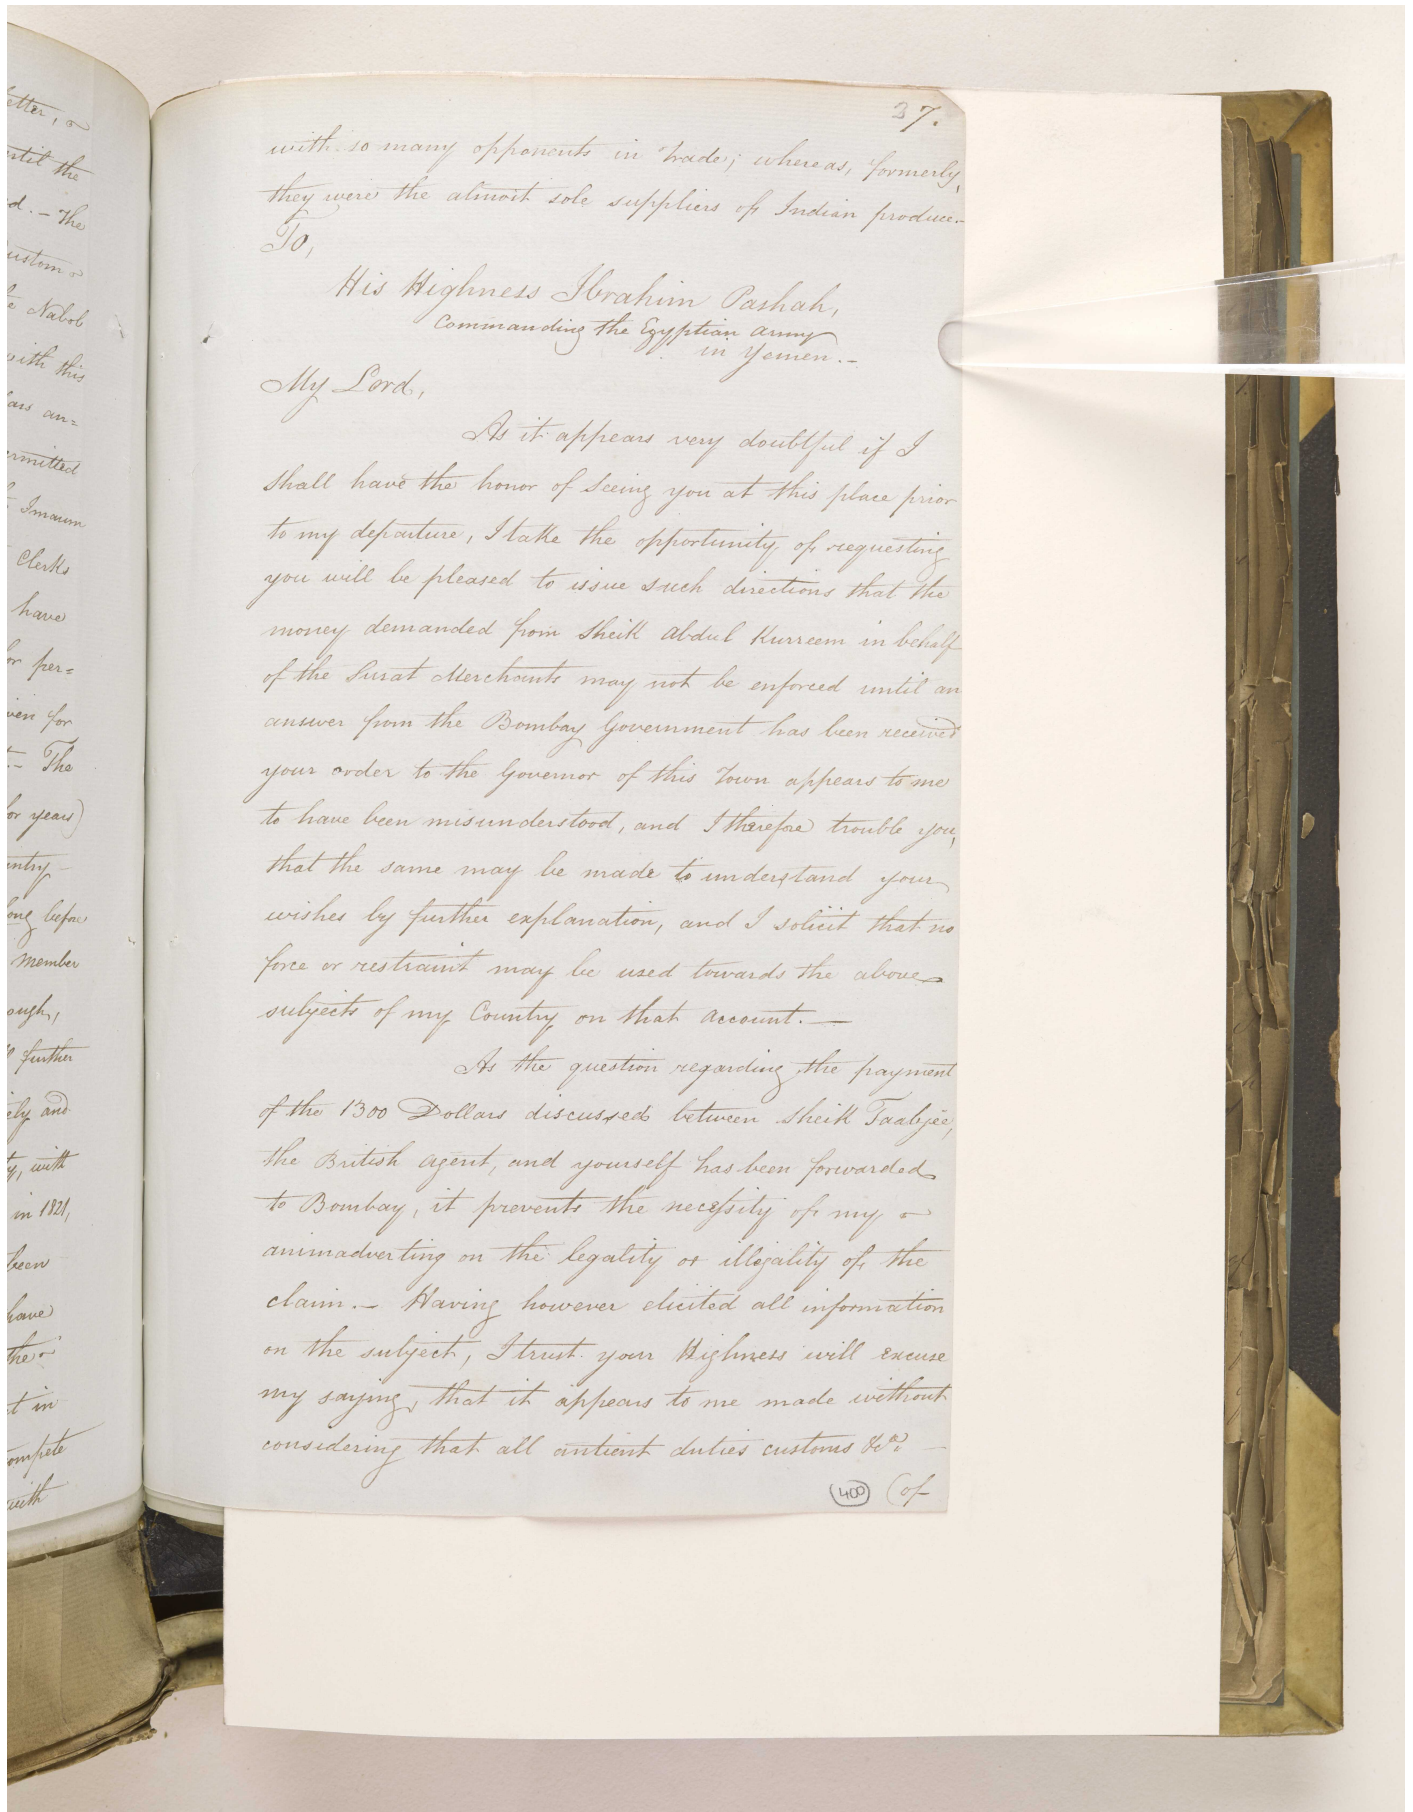 etter, &
until the
d. - The
ustom &
e Nabob
with this
ars an=
ermitted
Imaum
Clerks
have
or per=
iven for
- The
or years)
untry
ong before
member
ough,
further
ely and
ty, with
in 1821,
been
have
the
t in
ompete
with
37.
with so many opponents in trade; whereas, formerly,
they were the almost sole suppliers of Indian produce.-
To,
His Highness Ibrahim Pashah,
Commanding the Egyptian army
in Yemen.-
My Lord,
As it appears very doubtful if I
shall have the honor of seeing you at this place prior
to my departure, I take the opportunity of requesting
you will be pleased to issue such directions that the
money demanded from Sheik Abdul Kurreem in behalf
of the Surat Merchants may not be enforced until an
answer from the Bombay Government has been received
your order to the Governor of this Town appears to me
to have been misunderstood, and I therefore trouble you,
that the same may be made to understand your
wishes by further explanation, and I solicit that no
force or restraint may be used towards the above
subjects of my Country on that account.—
As the question regarding the payment
of the 1300 Dollars discussed between Sheik Taabjee,
the British Agent, and yourself has been forwarded
to Bombay, it prevents the necessity of my
animadverting on the legality or illegality of the
claim.- Having however elicited all information
on the subject, I trust your Highness will excuse
my saying, that it appears to me made without
considering that all antient duties customs &ca.
400 (of